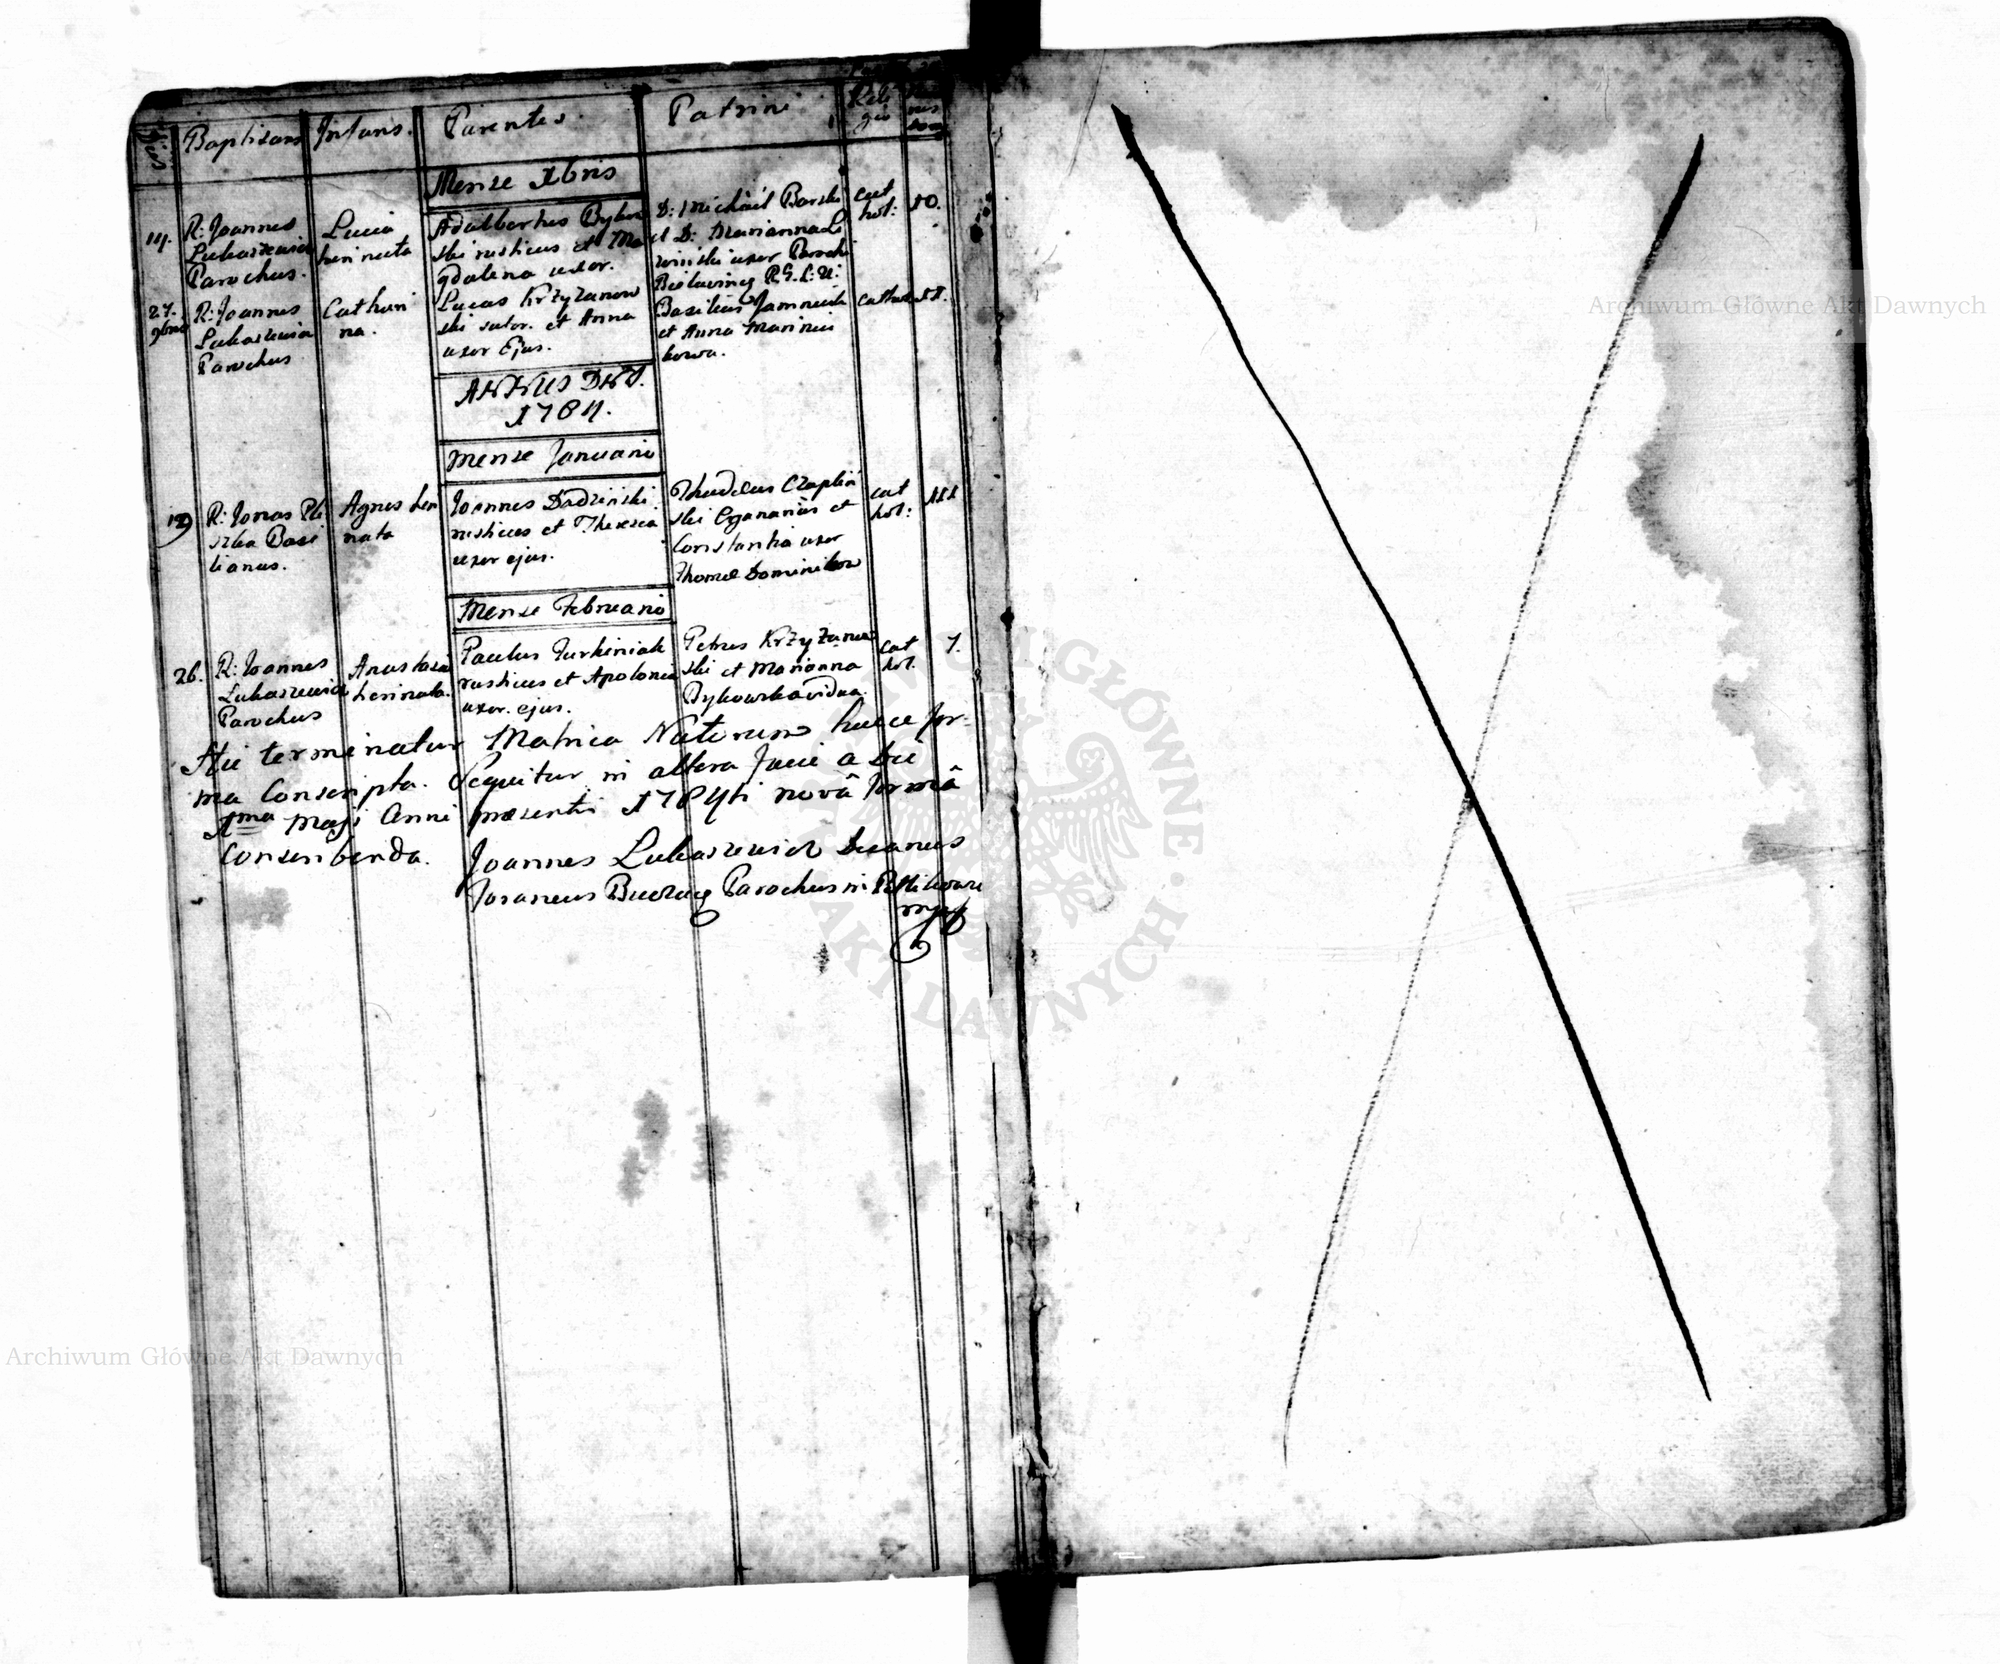 Dies
Baptisans
Infans.
Parentes.
Patrini
Reli
gio
Mense Xbris
14.
R: Joannes
Lukasiewicz
Parochus.
Lucia
heri nata
Adalbertus Byko
ski rusticus et Ma
gdalena uxor.
D: Michael Barski
et D: Marianna
uxor Paroch
R. G. C. U:
cat
hol:
10.
27.
9bris
R: Joannes
Lukasiewicz
Parochus
Cathari
na.
Lucas Krzyzanow
ski sutor. et Anna
uxor Ejus.
Basilius Jamniuk
et Anna Marinic
kowa.
cathol
11.
ANNUS DNI.
1784.
Mense Januario
12
R: Jonas
Basi
lianus.
Agnes heri
nata
Joannes Dadzinski
rusticus et Theresia
uxor ejus.
Thadeus Czaplin
ski et
Constantia uxor
Thomæ Dominikow
cat
hol:
111
Mense Februario
26.
R: Joannes
Lukasiewicz
Parochus
Anastasia
heri nata.
Paulus Turkiniak
rusticus et Apolonia
uxor. ejus.
Petrus Krzyzanow
ski et Marianna
Bykowska vidua.
cat
hol.
7.
Hic terminatur Matrica Natorum huice for=
ma Conscripta. Sequitur in altera facie a Die
1ma Maji Anni præsentis 1784ti novâ formâ
Conscribenda.
Joannes Lukasiewicz Decanus
Parochus in
mpp
Archiwum Główne Akt Dawnych
GŁÓWNE
AKT DAWNYCH
Archiwum Główne Akt Dawnych